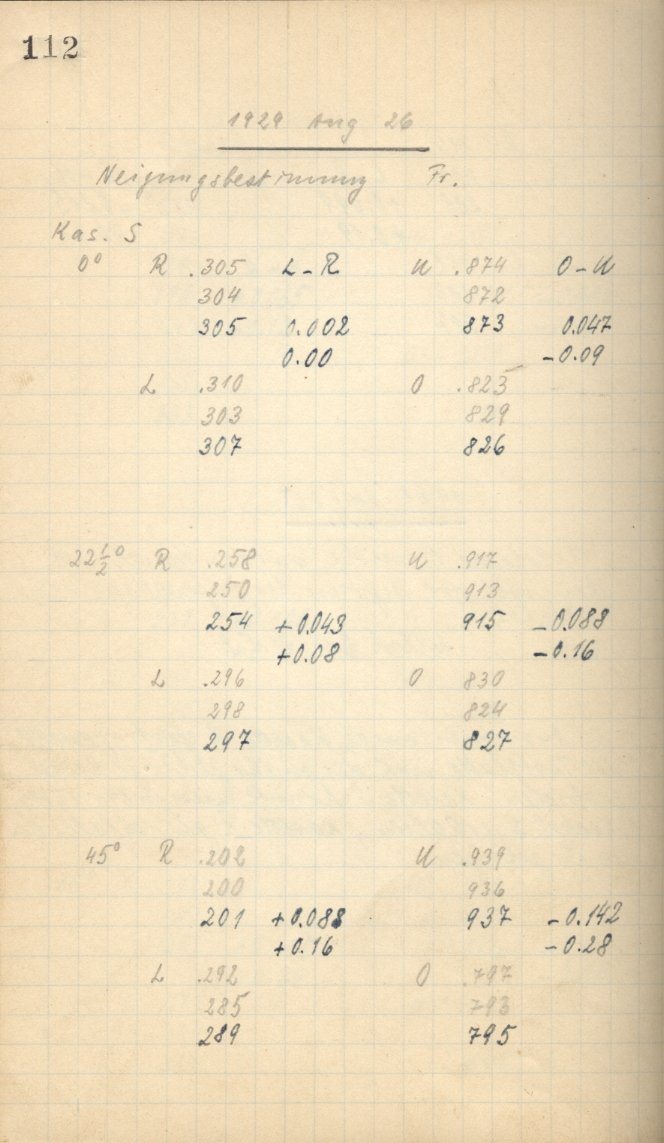 112
1929 Aug 26
Neigungsbestimmung Fr.
Kas. S
0° R .305 L-R U .874 O-U
304 872
305 0.002 873 0.047
0.00 -0.09
L .310 O .823
303 829
307 826
22 1/2° R .258 U .917
250 913
254 +0.043 915 -0.088
+0.08 -0.16
L .296 O 830
298 824
297 827
45° R .202 U .939
200 936
201 +0.088 937 -0.142
+0.16 -0.28
L .292 O .797
285 793
289 795